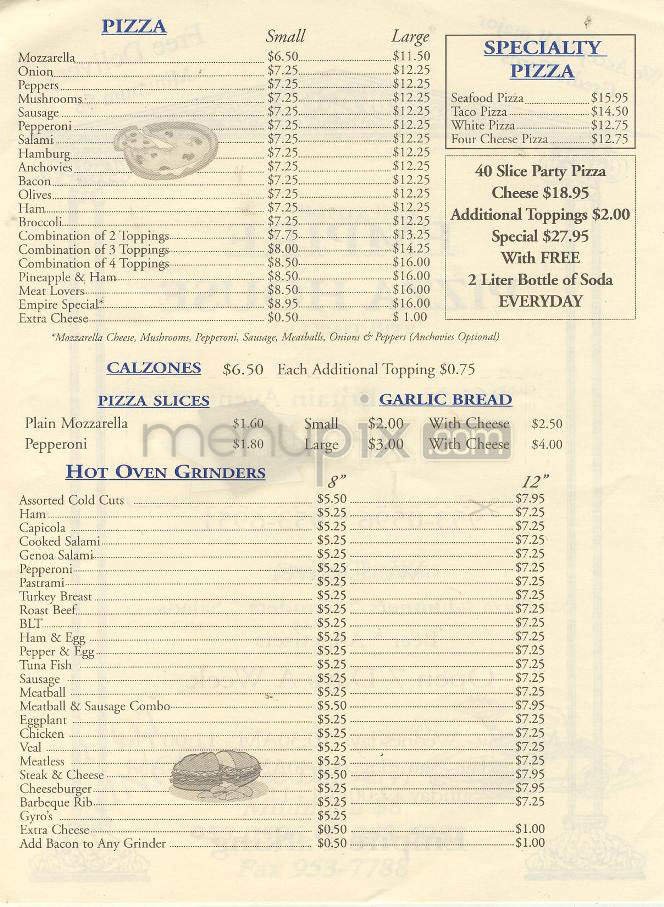 PIZZA
Small Large
Mozzarella $6.50 $11.50
Onion $7.25 $12.25
Peppers $7.25 $12.25
Mushrooms $7.25 $12.25
Sausage $7.25 $12.25
Pepperoni $7.25 $12.25
Salami $7.25 $12.25
Hamburg $7.25 $12.25
Anchovies $7.25 $12.25
Bacon $7.25 $12.25
Olives $7.25 $12.25
Ham $7.25 $12.25
Broccoli $7.25 $12.25
Combination of 2 Toppings $7.75 $13.25
Combination of 3 Toppings $8.00 $14.25
Combination of 4 Toppings $8.50 $16.00
Pineapple & Ham $8.50 $16.00
Meat Lovers $8.50 $16.00
Empire Special* $8.95 $16.00
Extra Cheese $0.50 $ 1.00
SPECIALTY
PIZZA
Seafood Pizza $15.95
Taco Pizza $14.50
White Pizza $12.75
Four Cheese Pizza $12.75
40 Slice Party Pizza
Cheese $18.95
Additional Toppings $2.00
Special $27.95
With FREE
2 Liter Bottle of Soda
EVERYDAY
*Mozzarella Cheese, Mushrooms, Pepperoni, Sausage, Meatballs, Onions & Peppers (Anchovies Optional)
CALZONES $6.50 Each Additional Topping $0.75
PIZZA SLICES
Plain Mozzarella $1.60
Pepperoni $1.80
GARLIC BREAD
Small $2.00 With Cheese $2.50
Large $3.00 With Cheese $4.00
menupix.com
HOT OVEN GRINDERS
8" 12"
Assorted Cold Cuts $5.50 $7.95
Ham $5.25 $7.25
Capicola $5.25 $7.25
Cooked Salami $5.25 $7.25
Genoa Salami $5.25 $7.25
Pepperoni $5.25 $7.25
Pastrami $5.25 $7.25
Turkey Breast $5.25 $7.25
Roast Beef $5.25 $7.25
BLT $5.25 $7.25
Ham & Egg $5.25 $7.25
Pepper & Egg $5.25 $7.25
Tuna Fish $5.25 $7.25
Sausage $5.25 $7.25
Meatball $5.25 $7.25
Meatball & Sausage Combo $5.50 $7.95
Eggplant $5.25 $7.25
Chicken $5.25 $7.25
Veal $5.25 $7.25
Meatless $5.25 $7.25
Steak & Cheese $5.50 $7.95
Cheeseburger $5.25 $7.95
Barbeque Rib $5.25 $7.25
Gyro's $5.25
Extra Cheese $0.50 $1.00
Add Bacon to Any Grinder $0.50 $1.00